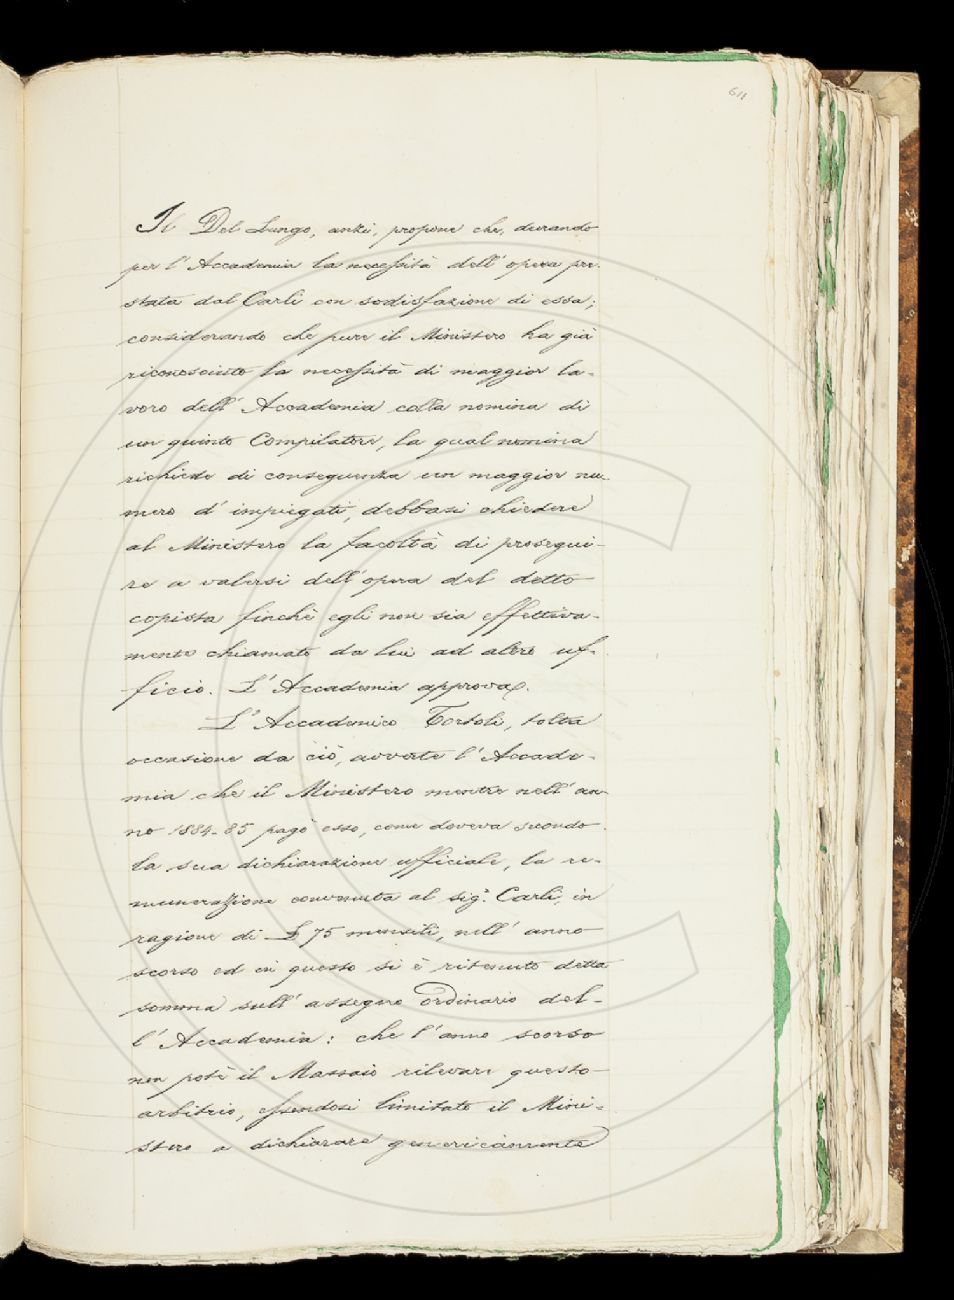 611
Il Del Lungo, anzi, propone che, durando
per l'Accademia la necessità dell'opera pre-
stata dal Carli con sodisfazione di essa;
considerando che pure il Ministero ha già
riconosciuto la necessità di maggior la-
voro dell'Accademia colla nomina di
un quinto Compilatore, la qual nomina
richiede di conseguenza un maggior nu-
mero d'impiegati, debbasi chiedere
al Ministero la facoltà di prosegui-
re a valersi dell'opera del detto
copista finchè egli non sia effettiva-
mente chiamato da lui ad altro uf-
ficio. L'Accademia approva.
L'Accademico Tortoli, tolta
occasione da ciò, avverte l'Accade-
mia che il Ministero mentre nell'an-
no 1884-85 pagò esso, come doveva secondo
la sua dichiarazione ufficiale, la re-
munerazione convenuta al sig.r Carli, in
ragione di L 75 mensili, nell'anno
scorso ed in questo si è ritenuto detta
somma sull'assegno ordinario del-
l'Accademia: che l'anno scorso
non potè il Massaio rilevare questo
arbitrio, essendosi limitato il Mini-
stero a dichiarare genericamente